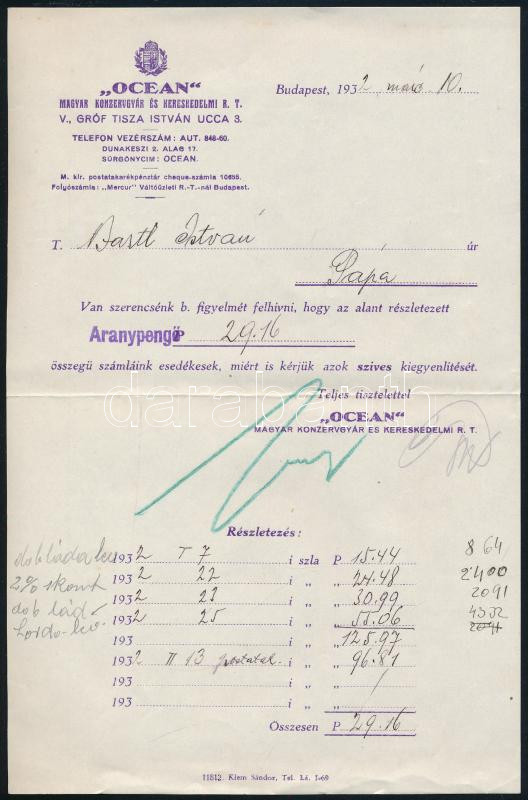 „OCEAN“
MAGYAR KONZERVGYÁR ÉS KERESKEDELMI R. T.
V., GRÓF TISZA ISTVÁN UCCA 3.
TELEFON VEZÉRSZÁM: AUT. 848-60.
DUNAKESZI 2. ALAG 17.
SÜRGÖNYCIM: OCEAN.
M. kir. postatakarékpénztár cheque-számla 10655.
Folyószámla: „Mercur“ Váltóüzleti R.-T.-nál Budapest.
Budapest, 1932 márc 10.
T. Bastl István úr
Pápa
Van szerencsénk b. figyelmét felhívni, hogy az alant részletezett
Aranypengő P 29.16
összegü számláink esedékesek, miért is kérjük azok szives kiegyenlítését.
Teljes tisztelettel
„OCEAN“
MAGYAR KONZERVGYÁR ÉS KERESKEDELMI R. T.
darabanth
Részletezés:
dob láda 1932 I 7 i szla P 15.44 8 64
2% skont 1932 22 i „ „ 24.48 2400
dob lád 1932 23 i „ „ 30.99 2091
1932 25 i „ „ 55.06 4332
193 i „ „ 125.97 2091
1932 II 13 postatal. i „ „ 96.81
193 i „ „ /
193 i „ „
Összesen P 29.16
11812. Klem Sándor, Tel. Lá. 1-69